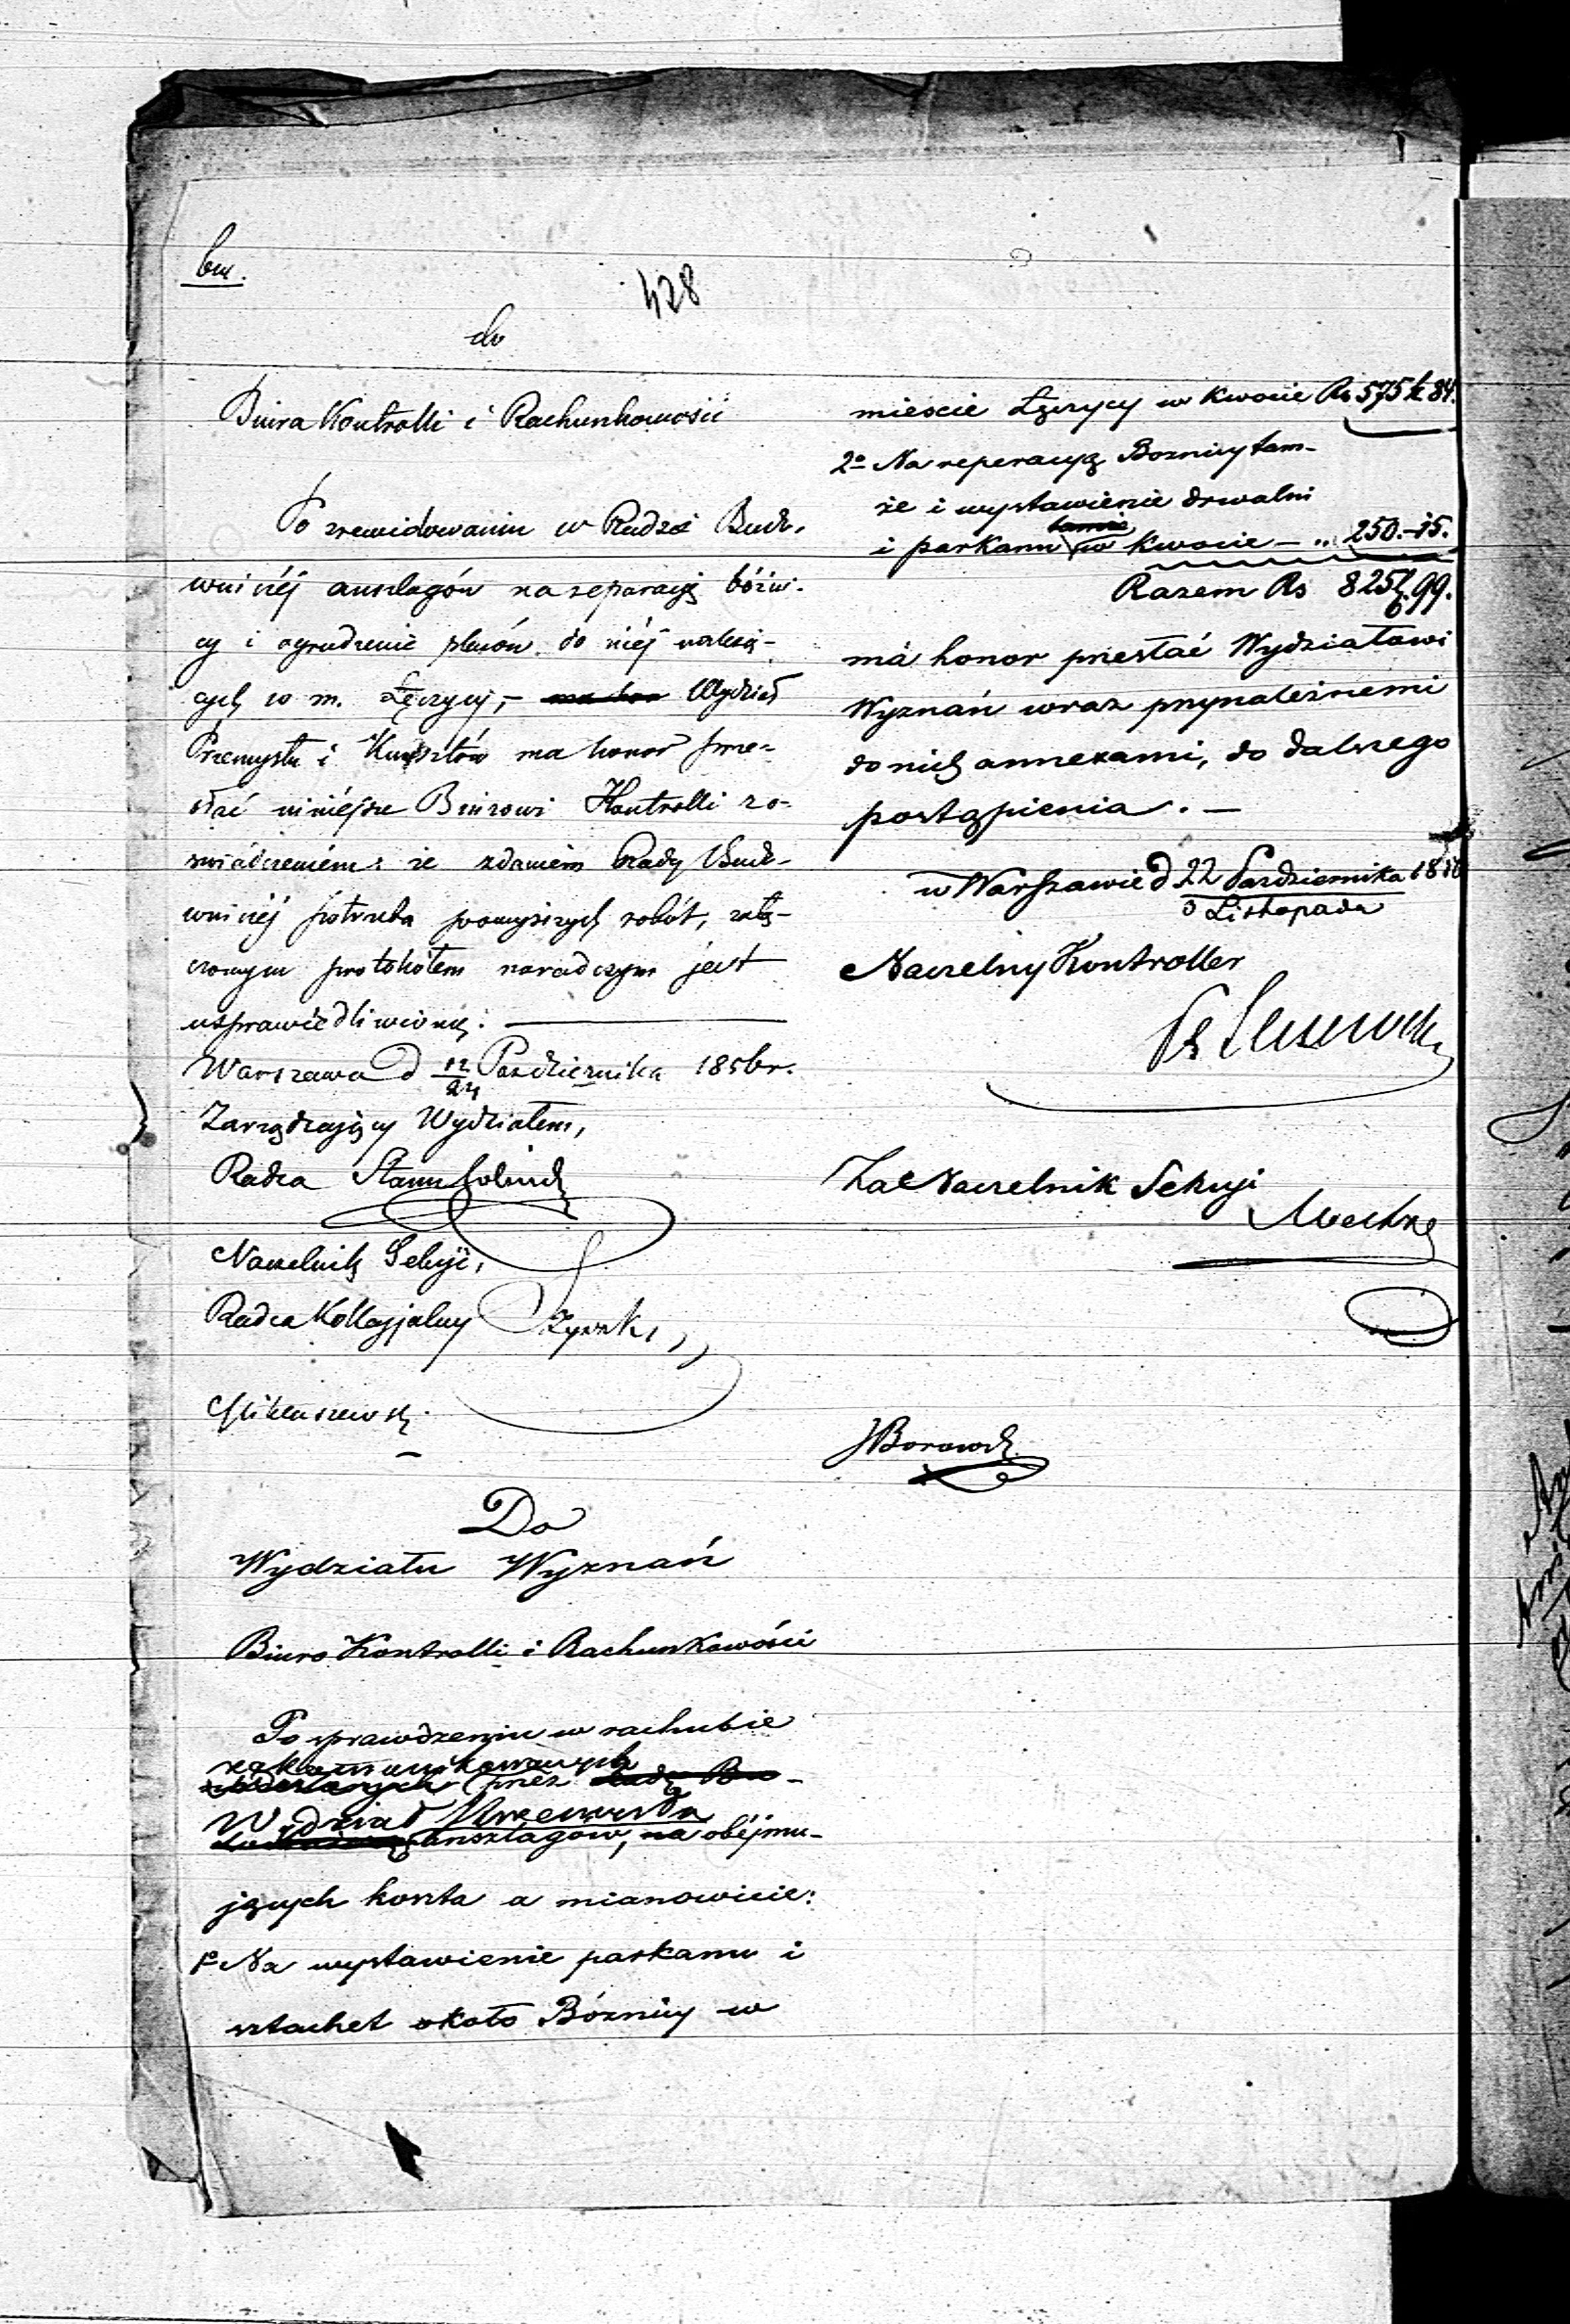 428
do
Biura Kontrolli i Rachunkowości
Po zrewidowaniu w Radzie Budo-
wniczéj anszlagów na reparacyę bóżni-
cy i ogrodzenie placów do niéj należą-
cych w m. Łęczycy, – Wydział
Przemysłu i Kunsztów ma honor prze-
słać niniéjsze Biurowi Kontrolli z o-
świadczeniem: że zdaniem Rady Budo-
wniczéj potrzeba powyższych robót, załą-
czonym protokółem naradczym jest
usprawiedliwioną. —
Warszawa d 12/24 Października 1856 r.
Zarządzający Wydziałem,
Radca Stanu
Naczelnik Sekcyi,
Radca Kollegjalny
Mikluszewski
Do
Wydziału Wyznań
Biuro Kontrolli i Rachunkowości
Po sprawdzeniu w rachubie
zakommunikowanych przez
Wydział anszlagów, obéjmu-
jących koszta a mianowicie:
1o Na wystawienie parkanu i
sztachet około Bóżnicy w
mieście Łęczycy w kwocie Rs 575 k 84.
2o Na reperacyą Bożnicy tam-
że i wystawienie drwalni
i parkanu w kwocie – „ 250.–15.
Razem Rs 825 k. 99.
ma honor przesłać Wydziałowi
Wyznań wraz przynależnemi
do nich annexami, do dalszego
postąpienia. —
w Warszawie d 22 Października 1856
3 Listopada
Naczelny Kontroller
Za Naczelnik Sekcyi
JBorowski